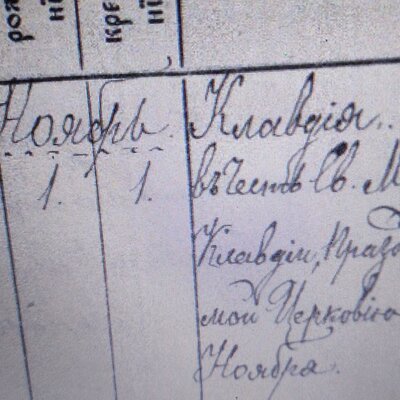 рож
нiя
кре
нiя
Ноябрь.
Клавдiя..
1. 1.
въ честь Св. М
Клавдiи, празд
мой Церковiю
Ноября.